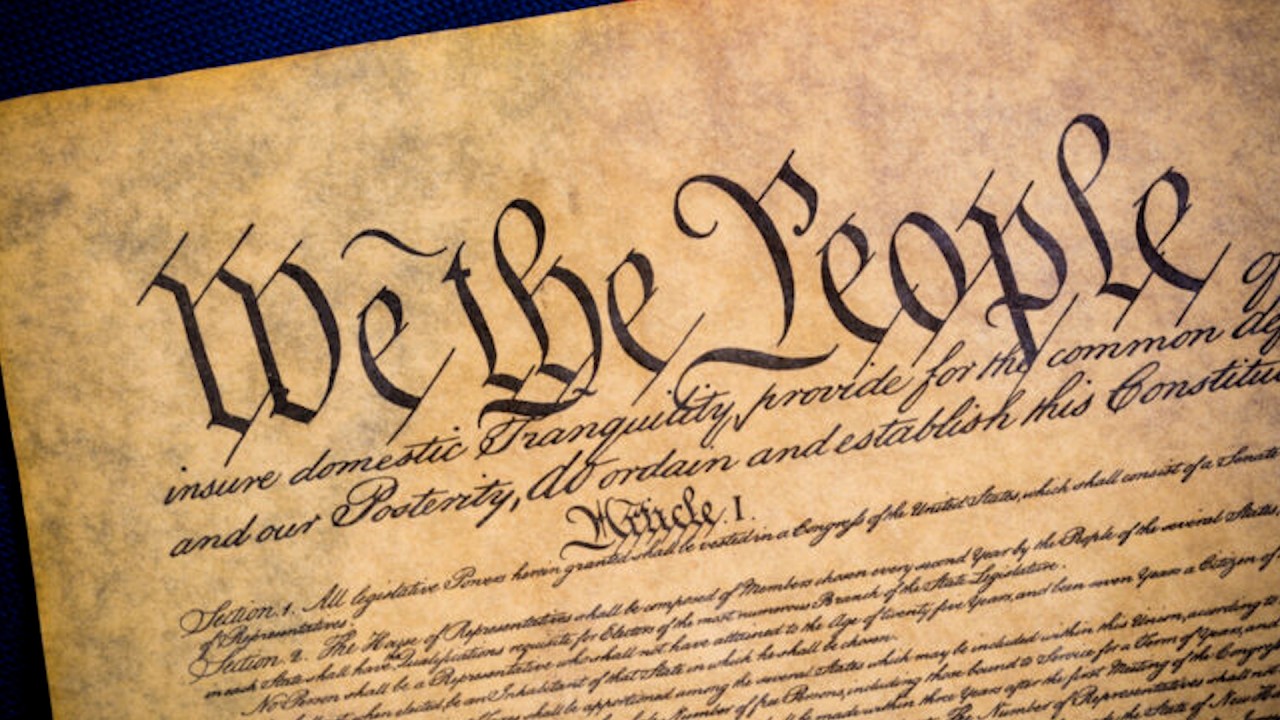 We the People of
insure domestic Tranquility, provide for the common def
and our Posterity, do ordain and establish this Constitu
Article. I.
Section. 1. All legislative Powers herein granted shall be vested in a Congress of the United States, which shall consist of a Senate
of Representatives.
Section. 2. The House of Representatives shall be composed of Members chosen every second Year by the People of the several States,
in each State shall have Qualifications requisite for Electors of the most numerous Branch of the State Legislature.
No Person shall be a Representative who shall not have attained to the Age of twenty five Years, and been seven Years a Citizen of
when elected, be an Inhabitant of that State in which he shall be chosen.
shall be apportioned among the several States which may be included within this Union, according to
Number of free Persons, including those bound to Service for a Term of Years, and
be made within three Years after the first Meeting of the Congress
The Number of Representatives shall not
the State of New